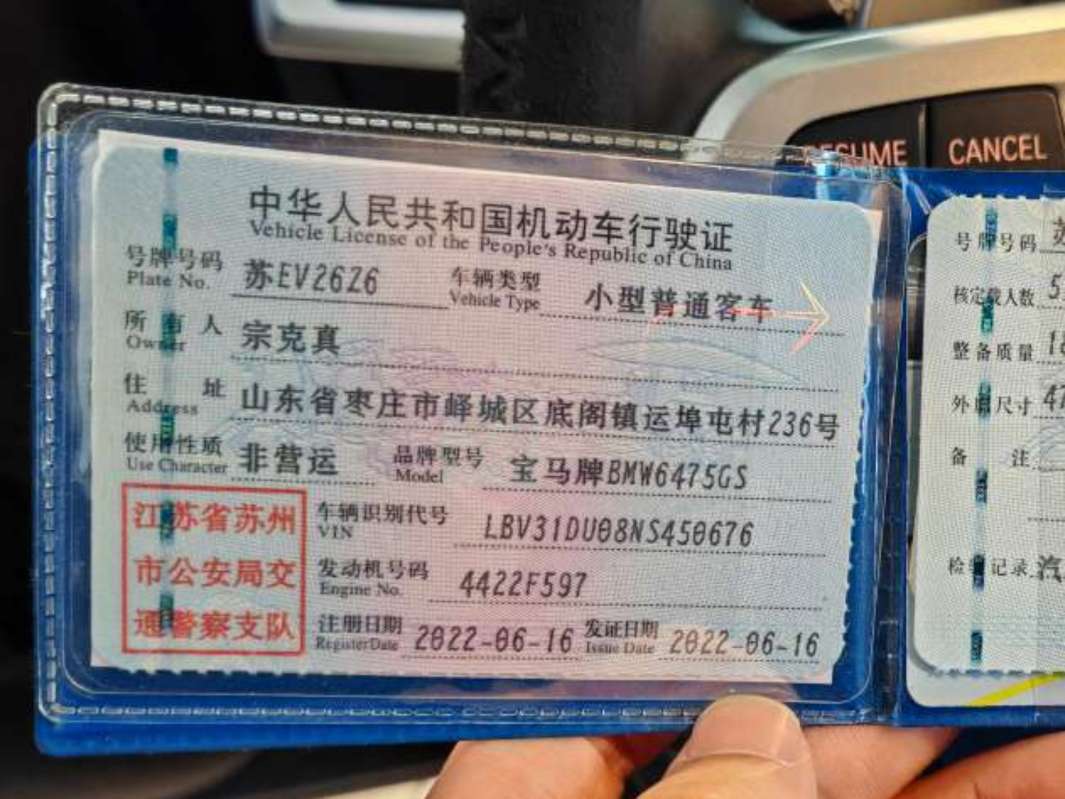 RESUME CANCEL
中华人民共和国机动车行驶证
Vehicle License of the People's Republic of China
号牌号码 苏EV26Z6 车辆类型 小型普通客车
Plate No. Vehicle Type
所有人 宗克真
Owner
住址 山东省枣庄市峄城区底阁镇运埠屯村236号
Address
使用性质 非营运 品牌型号 宝马牌BMW6475GS
Use Character Model
江苏省苏州
市公安局交
通警察支队
车辆识别代号 LBV31DU08NS450676
VIN
发动机号码 4422F597
Engine No.
注册日期 2022-06-16 发证日期 2022-06-16
Register Date Issue Date
号牌号码 苏
核定载人数 5
整备质量 18
外廓尺寸 47
备注
检验记录 汽